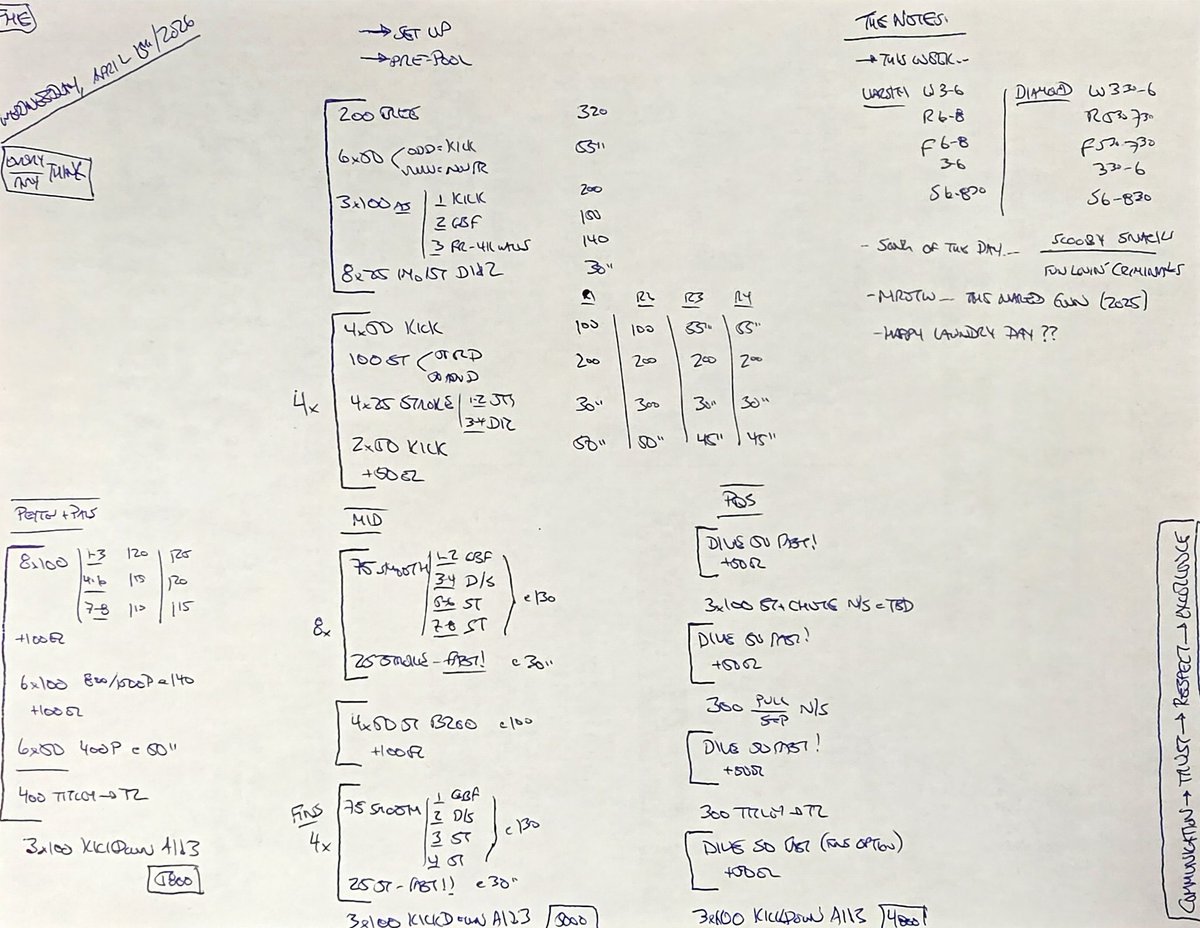 THE
WEDNESDAY, APRIL 15th/2026
EVERY
ANY THINK
→ SET UP
→ PRE-POOL
200 FREE 320
6x50 ODD=KICK 55"
3x100 AS 1 KICK 200
2 GBF 150
3 FR-4K WALLS 140
8x25 IMO 1ST D1&2 30"
R1 R2 R3 R4
4x
4x50 KICK 100 100 55" 55"
100 ST 200 200 200 200
4x25 STROKE 1-2 30" 300 30" 30"
3-4 DR
2x50 KICK 50" 50" 45" 45"
+50EZ
THE NOTES:
→ THIS WEEK...
VARSITY W 3-6
R 6-8
F 6-8
3-6
S 6-830
DIAMOND W 330-6
R 530-730
F 530-730
330-6
S6-830
- SONG OF THE DAY... SCOOBY SNACKS
FUN LOVIN' CRIMINALS
- MROTW - THE NAKED GUN (2025)
- HAPPY LAUNDRY DAY ??
PEYTON + PALS
8x100 1-3 120 125
4-6 115 120
7-8 110 115
+100EZ
6x100 800/1500P @ 140
+100EZ
6x50 400P @ 50"
400 → TZ
3x100 KICKDOWN A1&3
5800
MID
8x
75 SMOOTH 1-2 GBF
3-4 D/S
5-6 ST
7-8 ST
@130
25 STROKE - FAST! @30"
4x50 ST B200 @100
+100EZ
FINS
4x
75 SMOOTH 1 GBF
2 D/S
3 ST
4 ST
@130
25 ST - FAST!! @30"
3x100 KICKDOWN A1&3 5000
POS
DIVE 50 FAST!
+50EZ
3x100 ST+CHUTE N/S = TBD
DIVE 50 FAST!
+50EZ
300 PULL N/S
DIVE 50 FAST!
+50EZ
300 → TZ
DIVE 50 FAST (FINS OPTION)
+50EZ
3x100 KICKDOWN A1&3 4800
COMMUNICATION → TRUST → RESPECT → EXCELLENCE